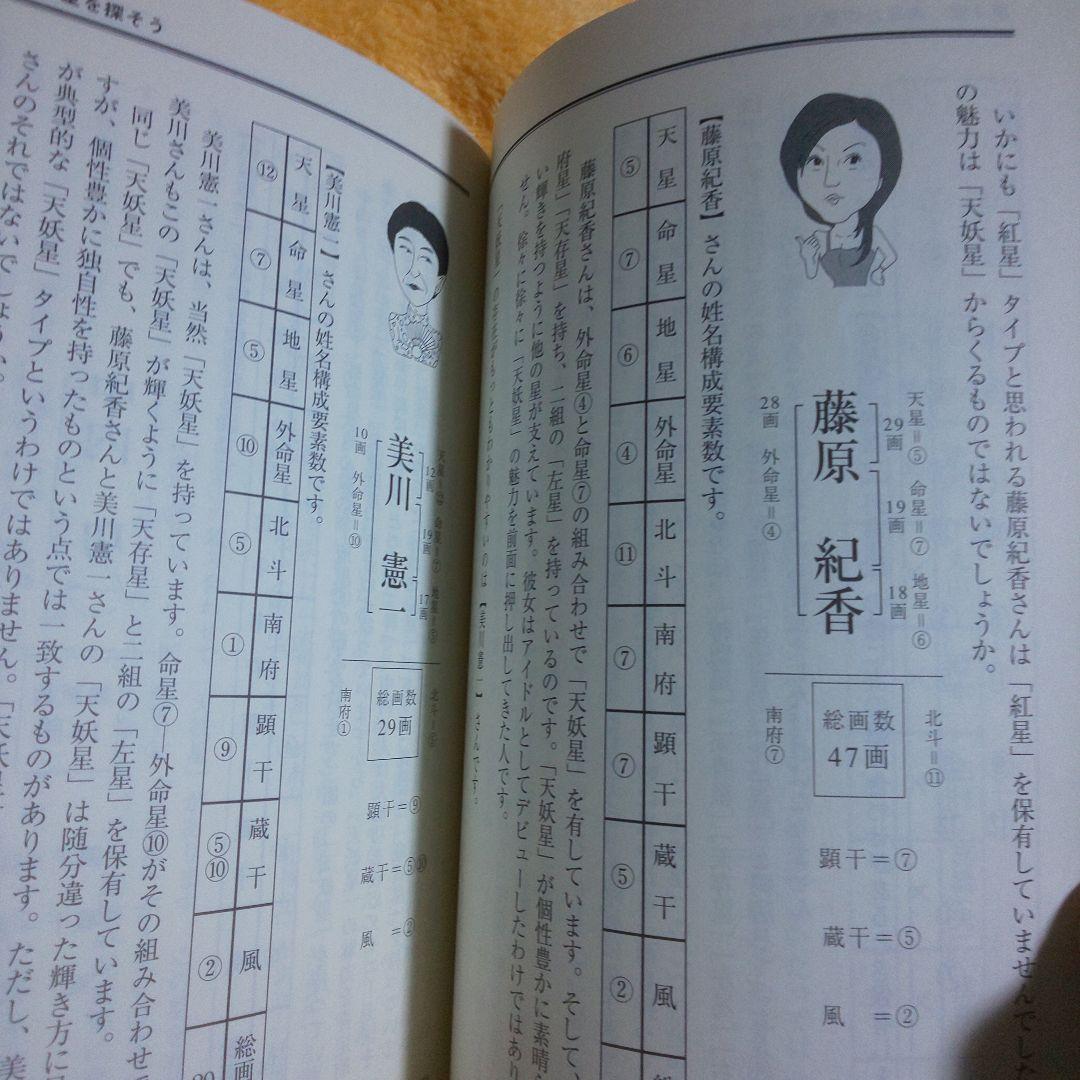 いかにも「紅星」タイプと思われる藤原紀香さんは「紅星」を保有していませんでした
の魅力は「天妖星」からくるものではないでしょうか。
天星=⑤ 命星=⑦ 地星=⑥
29画 19画 18画
藤原 紀香
28画 外命星=④
北斗=⑪
総画数
47画
南府⑦
顕干=⑦
蔵干=⑤
風 =②
【藤原紀香】さんの姓名構成要素数です。
天星 命星 地星 外命星 北斗 南府 顕干 蔵干 風
⑤ ⑦ ⑥ ④ ⑪ ⑦ ⑦ ⑤ ②
藤原紀香さんは、外命星④と命星⑦の組み合わせで「天妖星」を有しています。そして、
府星」「天存星」を持ち、二組の「左星」を持っているのです。「天妖星」が個性豊かに素晴
い輝きを持つように他の星が支えています。彼女はアイドルとしてデビューしたわけではあり
せん。徐々に徐々に「天妖星」の魅力を前面に押し出してきた人です。
【美川憲一】さんです。
を探そう
12画 19画 17画
美川 憲一
10画 外命星=⑩
総画数
29画
南府①
顕干=⑨
蔵干=⑤⑩
風 =②
【美川憲一】さんの姓名構成要素数です。
天星 命星 地星 外命星 北斗 南府 顕干 蔵干 風 総画
⑫ ⑦ ⑤ ⑩ ⑤ ① ⑨ ⑤⑩ ②
美川憲一さんは、当然「天妖星」を持っています。命星⑦―外命星⑩がその組み合わせで
美川さんもこの「天妖星」が輝くように「天存星」と二組の「左星」を保有しています。
同じ「天妖星」でも、藤原紀香さんと美川憲一さんの「天妖星」は随分違った輝き方に
すが、個性豊かに独自性を持ったものという点では一致するものがあります。ただし、美
が典型的な「天妖星」タイプというわけではありません。「天妖星」
さんのそれではないでしょうか。